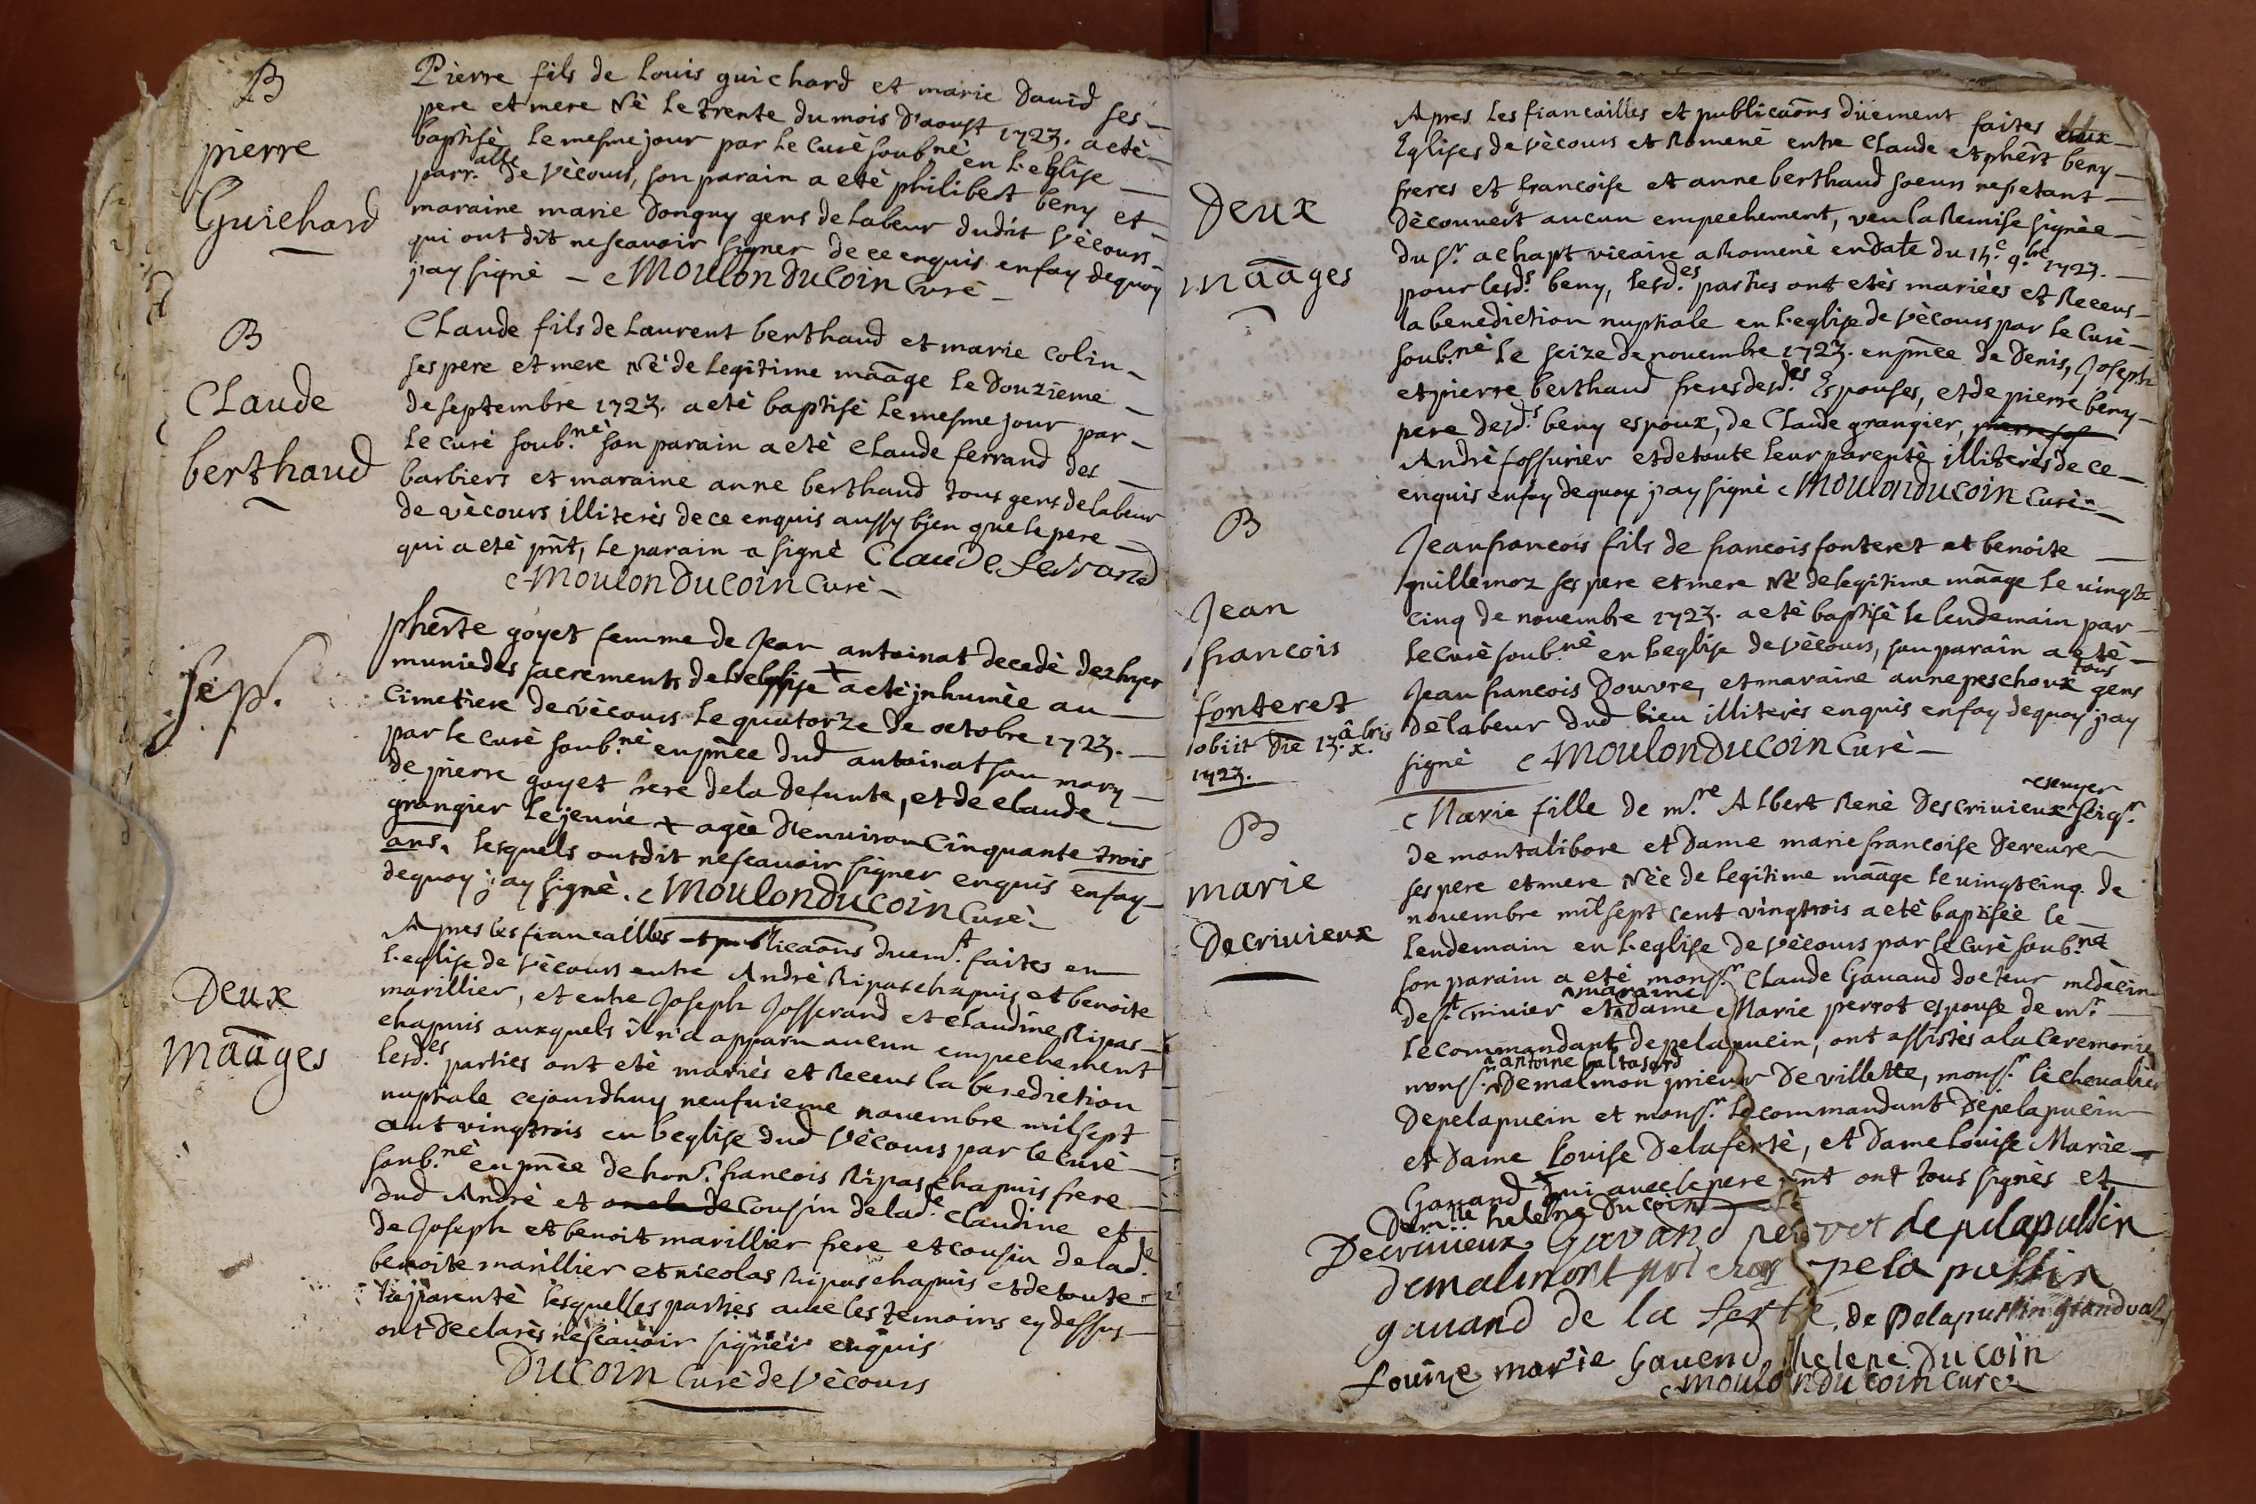 B
pierre
Guichard
Pierre fils de Louis guichard et marie David ses
pere et mere Né le trente du mois d'aoust 1723. a eté
baptisè le mesme jour par le Curè soub.né en l'eglise
parr.alle de Vècours, son parain a etè philibert beny et
maraine marie Donguy gens de labeur dudit Vècours
qui ont dit nescavoir signer de ce enquis enfoy dequoy
j'ay signè – Moulon Du Coin Curè –
B
Claude
berthaud
Claude fils de Laurent berthaud et marie Colin
ses pere et mere Nè de legitime māāge le Douzieme
de septembre 1723. a etè baptisè le mesme jour par
le curè soub.nè son parain a etè Claude ferrand des
barbiers et maraine anne berthaud tous gens de labeur
de vècours illiterès de ce enquis aussy bien que le pere
qui a etè pn̄t, le parain a signè Claude ferrand
Moulon Du Coin Curè –
sep.
phērte goyet femme de Jean antoinat decedè dez hyer
munie des sacrements de l'eglise a etè jnhumèe au
Cimetiere de vècours le quatorze de octobre 1723.
par le curè soub.nè en pn̄ce dud antoinat son mary
de pierre goyet frere de la defunte, et de claude
grangier le jeune x agèe d'environ Cinquante trois
ans, lesquels ont dit nescavoir signer enquis enfoy
dequoy j'ay signè. Moulon Du Coin Curè
Deux
Māāges
Apres les fiancailles et publicaōns duem.t faites en
l'eglise de Vècours entre Andrè Ripas chapuis et benoite
marillier, et entre Joseph Josserand et Claudine Ripas
chapuis auxquels il n'a apparu aucun empechement
lesd.es parties ont etè mariès et Receus la benediction
nuptiale cejourdhuy neufuieme novembre mil sept
cent vingtrois en l'eglise dud Vècours par le Curè
soub.nè en pn̄ce de hon.r francois Ripas chapuis frere
dud Andrè et Cousin de lad.e Claudine et
de Joseph et benoit marillier frere et cousin de lad.e
benoite marillier et nicolas Ripas chapuis et de toute
la parentè lesquelles parties avec les temoins cy dessus
ont declarès nescavoir signer enquis
DU COIN Curè de Vècours
Deux
māāges
Apres les fiancailles et publicaōns düement faites
Eglises de vècours et Romenè entre Claude et phērt beny
freres et francoise et anne berthaud soeurs nesetant
dècouvert aucun empechement, veu la Remise signèe
du S.r achapt vicaire a Romenè en date du 15.e 9.bre 1723.
pour lesd.s beny, lesd.es parties ont etès mariès et Receus
la benediction nuptiale en l'eglise de Vècours par le Curè
soub.nè le seize de novembre 1723. en pn̄ce de Denis, Joseph
et pierre berthaud freres desd.es Espouses, et de pierre beny
pere desd.s beny espoux, de Claude grangier,
Andrè fossurier et de toute leur parentè illiterès de ce
enquis enfoy dequoy j'ay signè Moulon Du Coin Curè
B
Jean
francois
fonteret
obiit die 13. x.bris
1723.
Jean francois fils de francois fonteret et benoite
guillemoz ses pere et mere Nè de legitime māāge le vingt
cinq de novembre 1723. a etè baptisè le lendemain par
le Curè soub.nè en l'eglise de Vècours, son parain a etè
Jean francois Douvre, et maraine anne peschoux tous gens
de labeur dud lieu illiterès enquis enfoy dequoy j'ay
signè Moulon Du Coin Curè –
B
marie
Decrivieux
Marie fille de m.re Albert Renè Descrivieux escuyer Seig.r
de montalibore et Dame marie francoise Dereure
ses pere et mere Nèe de legitime māāge le vingtcinq de
novembre mil sept cent vingtrois a etè baptisèe le
lendemain en l'eglise de Vècours par le Curè soub.nè
son parain a etè mons.r Claude Gavand docteur mèdècin
de S.t Trivier et maraine dame Marie perrot espouse de m.r
le commandant de pelapucin, ont assistès a la Ceremonie
mons.r antoine baltasard De malmon prieur de Villette, mons.r le chevalier
De pelapucin et mons.r le commandant De pelapucin
et Dame Louise De la fertè, et Dame Louise Marie
Gavand qui avec le pere pn̄t ont tous signès et
Dem.lle helene Du Coin
Decrivieux Gavand perrot de pelapussin
demalmont prieur pelapussin
gavand de la ferte, de Pelapussin grandval
Louise marie Gavend helene Du Coin
Moulon Du Coin Curè